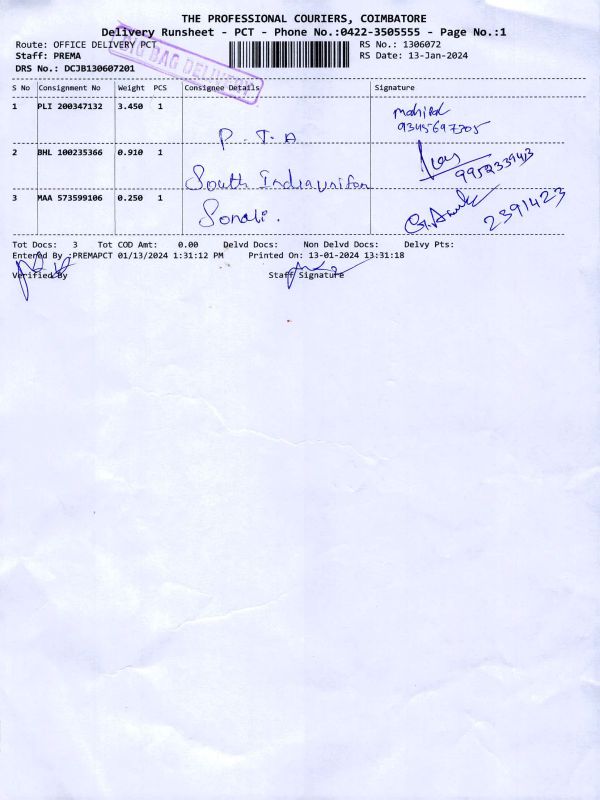 THE PROFESSIONAL COURIERS, COIMBATORE
Delivery Runsheet - PCT - Phone No.:0422-3505555 - Page No.:1
Route: OFFICE DELIVERY PCT
RS No.: 1306072
Staff: PREMA
RS Date: 13-Jan-2024
DRS No.: DCJB130607201
BIG BAG DELIVERY
S No Consignment No Weight PCS Consignee Details Signature
1 PLI 200347132 3.450 1 P.T.A
2 BHL 100235366 0.910 1 South India 9952339423
3 MAA 573599106 0.250 1 Sonali. 2391423
Tot Docs: 3 Tot COD Amt: 0.00 Delvd Docs: Non Delvd Docs: Delvy Pts:
Entered By :PREMAPCT 01/13/2024 1:31:12 PM Printed On: 13-01-2024 13:31:18
Verified By Staff Signature